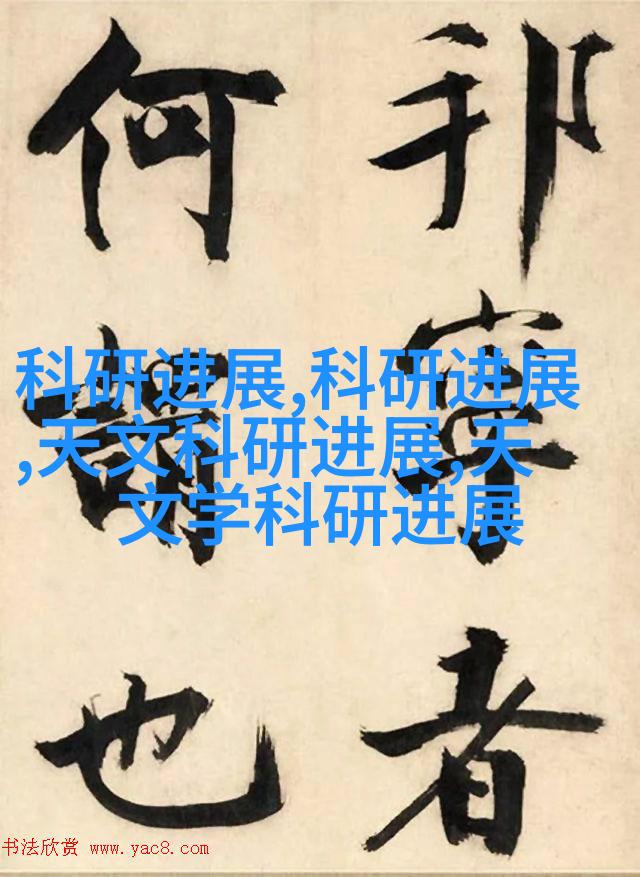 邦寧者
何謂也
科研进展,科研进展
,天文科研进展,天
文学科研进展
书法欣赏 www.yac8.com